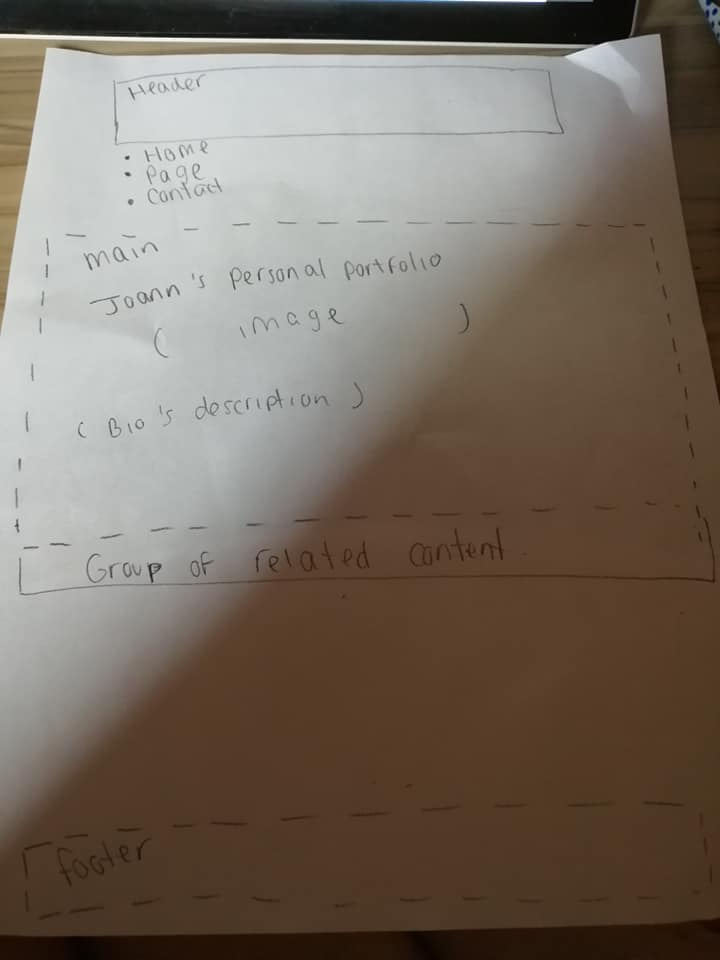 Header
• Home
• Page
• Contact
main
Joann's personal portfolio
( image )
( Bio's description )
Group of related content.
footer